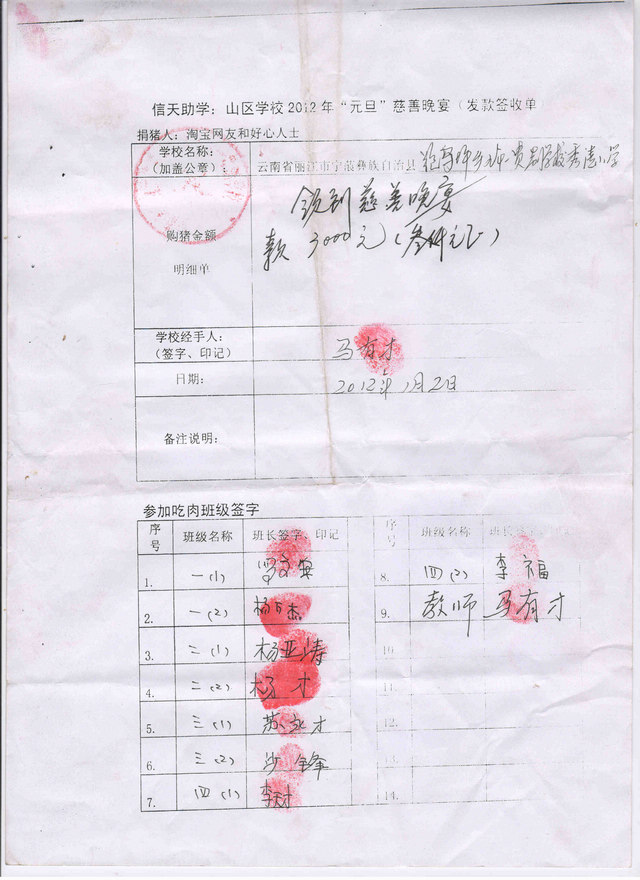 信天助学：山区学校2012年“元旦”慈善晚宴（发款签收单
捐猪人：淘宝网友和好心人士
学校名称：
（加盖公章）：
云南省丽江市宁蒗彝族自治县
购猪金额
明细单
领到慈善晚宴
款 3000元（叁仟元正）
学校经手人：
（签字、印记）
马有才
日期：
2012年1月2日
备注说明：
参加吃肉班级签字
序号 班级名称 班长签字、印记
1. 一(1)
2. 一(2) 杨日杰
3. 二(1) 杨亚涛
4. 二(2) 杨才
5. 三(1) 苏永才
6. 三(2) 沙锋
7. 四(1) 李才
序号 班级名称 班长签字、印记
8. 四(2) 李福
9. 教师 马有才
10.
11.
12.
13.
14.